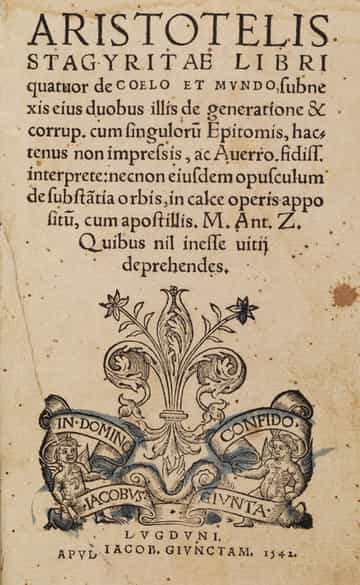 ARISTOTELIS
STAGYRITAE LIBRI
quatuor de COELO ET MVNDO, subne
xis eius duobus illis de generatione &
corrup. cum singulorũ Epitomis, hac-
tenus non impressis, ac Auerro. fidiss.
interprete: necnon eiusdem opusculum
de substãtia orbis, in calce operis appo
sitũ, cum apostillis. M. Ant. Z.
Quibus nil inesse uitij
deprehendes.
IN·DOMINO CONFIDO·
·IACOBVS· GIVNTA·
LVGDVNI.
APVD IACOB. GIVNCTAM. 1542.